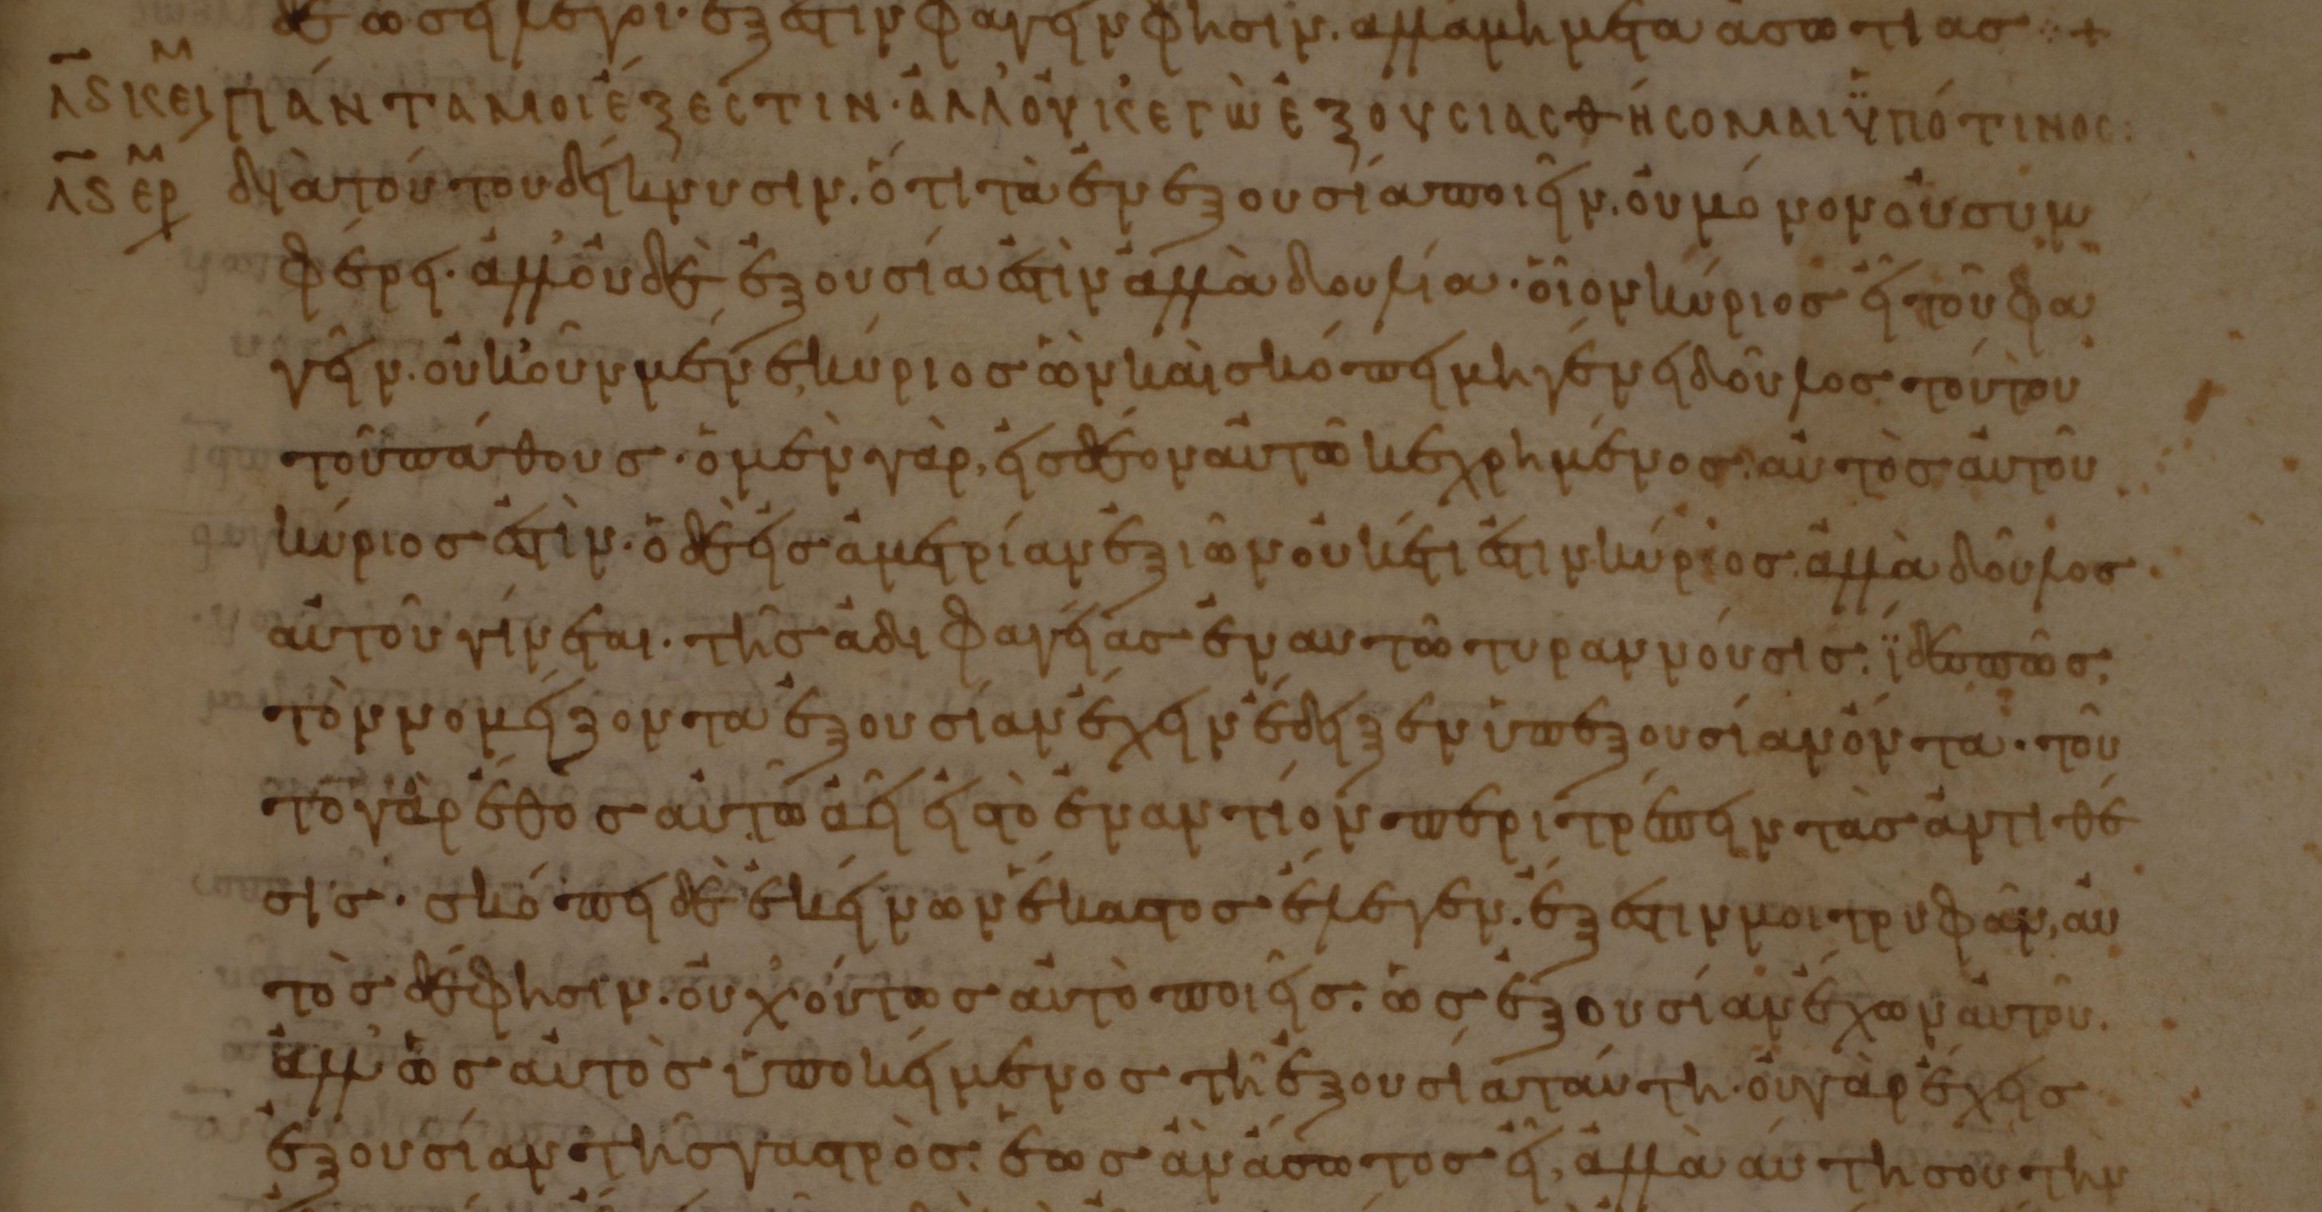 δε ὡσεὶ λέγοι· ἔξεστιν φαγεῖν φησίν. ἀλλὰ μὴ μετὰ ἀσωτίας :+
λϛ κειμ ΠΆΝΤΑ ΜΟΙ ἜΞΕΣΤΙΝ· ἈΛΛ' ΟΥ̓Κ ἘΓῺ ἘΞΟΥΣΙΑΣΘΉΣΟΜΑΙ ὙΠΌ ΤΙΝΟΣ:
λϛ ερμ διὰ τούτου δείκνυσιν. ὅτι τὰ ἐν ἐξουσία ποιεῖν. οὐ μόνον οὐ συμ
φέρει· ἀλλ' οὐδὲ ἐξουσία ἐστὶν ἀλλὰ δουλία· οἷον κύριος εἶ τοῦ φα
γεῖν. οὐκοῦν μένε κύριος ὢν καὶ σκόπει μὴ γένη δοῦλος τούτου
τοῦ πάθους· ὁ μὲν γὰρ, εἰς δέον αὐτῶ κεχρημένος. αὐτὸς αὐτοῦ
κύριος ἐστὶν· ὁ δὲ εἰς ἀμετρίαν ἐξιὼν οὐκέτι ἐστιν κύριος. ἀλλὰ δοῦλος
αὐτοῦ γίνεται· τῆς ἀδιφαγείας ἐν αυτῶ τυραννούσις. ἴδε πῶς,
τὸν νομείζοντα ἐξουσίαν ἔχειν ἔδειξεν ὑπ' ἐξουσίαν ὄντα· τοῦ
το γὰρ ἔθος αὐτῶ ἀεὶ εἰς τὸ ἐναντίον περιτρέπειν τὰς ἀντιθέ
σις· σκόπει δὲ ἐκείνων ἕκαστος ἔλεγεν. ἔξεστιν μοι τρυφᾶν, αὐ
τὸς δέ φησιν. οὐχ' οὕτως αὐτὸ ποιεῖς. ὡς ἐξουσίαν ἔχων αὐτοῦ.
ἀλλ' ὡς αὐτὸς ὑποκείμενος τῆ ἐξουσία ταύτη· οὐ γὰρ ἔχεις
ἐξουσίαν τῆς γαστρὸς. ἕως ἂν ἄσωτος εἶ, ἀλλὰ αὐτη σου τὴν